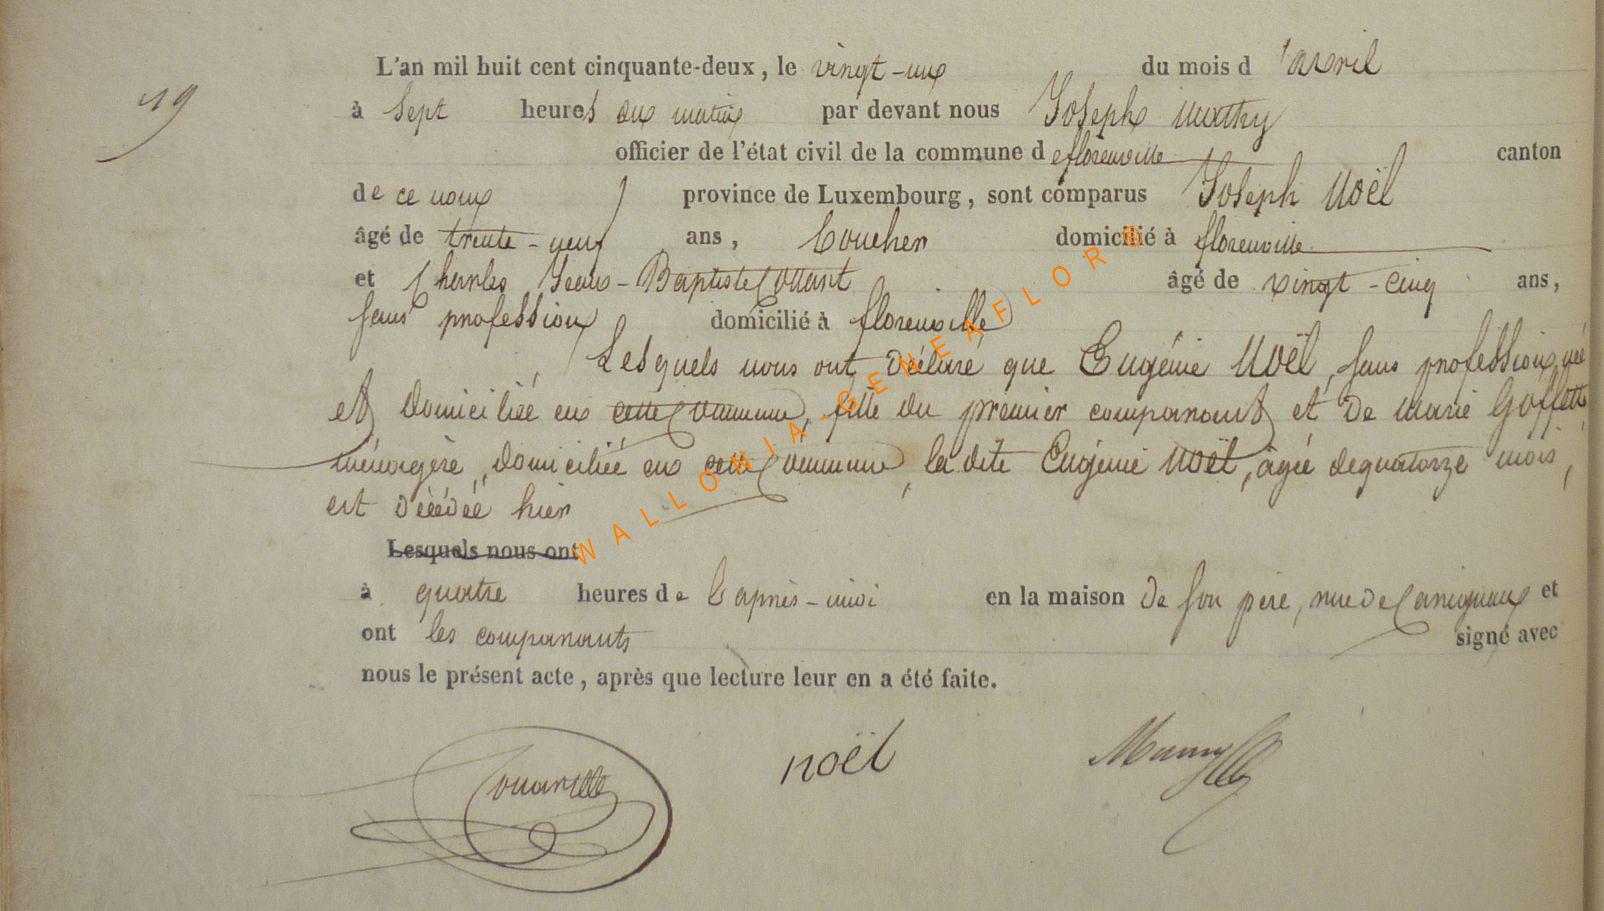 19
L'an mil huit cent cinquante-deux, le vingt-un du mois d'avril
à sept heures du matin par devant nous Joseph Mathy
officier de l'état civil de la commune de florenville canton
de ce nom, province de Luxembourg, sont comparus Joseph Noël
âgé de trente-neuf ans, Boucher domicilié à florenville
et Charles Jean-Baptiste Collart âgé de vingt-cinq ans,
sans profession domicilié à florenville
Lesquels nous ont déclaré que Eugénie Noël, sans profession, née
et domiciliée en cette commune, fille du premier comparant et de marie Goffette
ménagère, domiciliée en cette commune, la dite Eugénie Noël, âgée de quatorze mois,
est décédée hier
Lesquels nous ont
à quatre heures de l'après-midi en la maison de son père, rue de et
ont les comparants signé avec
nous le présent acte, après que lecture leur en a été faite.
noël
WALLONIA-GENEAFLORE